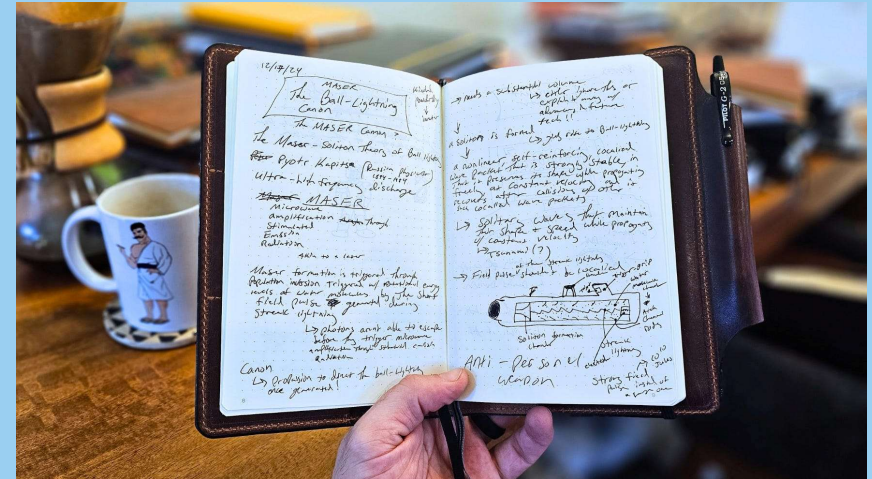 12/17/24
MASER
The Ball-Lightning
Canon
The MASER Canon?
The Maser-Soliton Theory of Ball Lightning
Pyotr Kapitsa (Russian Physicist)
Ultra-high frequency discharge
MASER
Microwave
amplification through
Stimulated
Emission
Radiation
Akin to a laser
Maser formation is triggered through
Population inversion triggered w/ rotational energy
levels of water molecules by the short
field pulse generated during
streak lightning
↳ photons aren't able to escape
before by trigger microwave
amplification through stimulated emission
Radiation
Canon
↳ Propulsion to direct the ball-lightning
once generated!
→ needs a substantial volume
↳ either streaks or
tech!!
a soliton is formed
↳ giving rise to Ball-lightning
a nonlinear, self-reinforcing localized
wave packet that is strongly stable, in
that it preserves its shape while propagating
freely, at constant velocity, and
recovers after collisions w/ other
localized wave packets
↳ Solitary waves that maintain
their shape & speed while propagating
w/ constant velocity
↳ Tsunami(?)
→ Field pulse should be localized
Soliton formation
chamber
streak
lightning
Anti-Personel
weapon
strong field
PILOT G-2